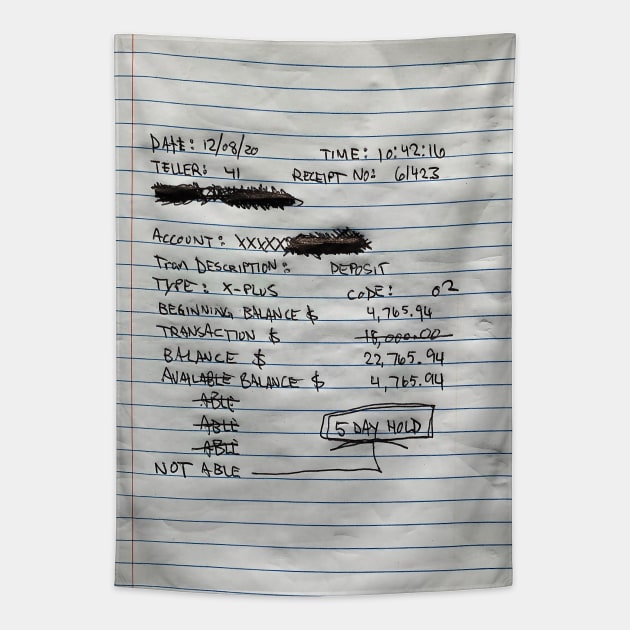 DATE: 12/08/20 TIME: 10:42:16
TELLER: 41 RECEIPT NO: 61423
ACCOUNT: XXXXX
Tran DESCRIPTION: DEPOSIT
TYPE: X-PLUS CODE: 02
BEGINNING BALANCE $ 4,765.94
TRANSACTION $ 18,000.00
BALANCE $ 22,765.94
AVAILABLE BALANCE $ 4,765.94
ABLE
ABLE
ABLE
5 DAY HOLD
NOT ABLE